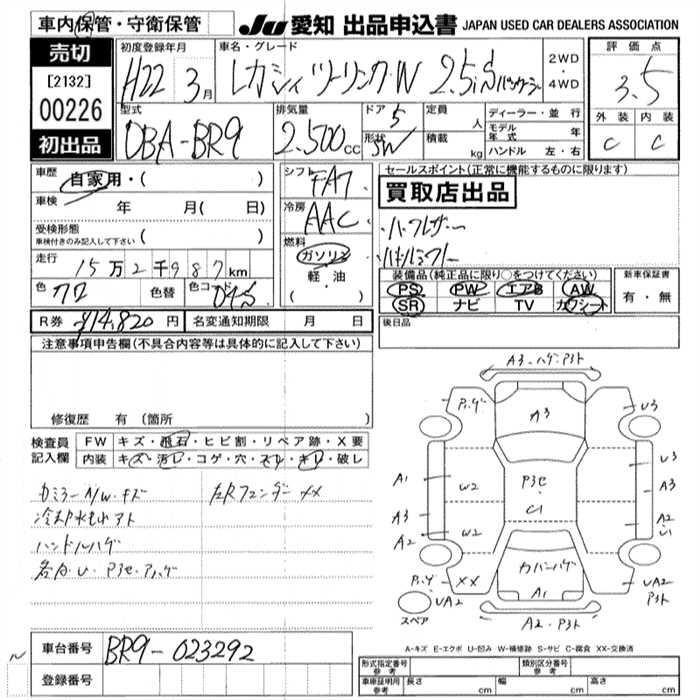 車内保管・守衛保管
JU 愛知 出品申込書 JAPAN USED CAR DEALERS ASSOCIATION
売切
[2132]
00226
初出品
初度登録年月
H22 3月
車名・グレード
レガシィツーリングW 2.5i S
2WD・4WD
評価点
3.5
外装 内装
C C
型式
DBA-BR9
排気量
2.500cc
ドア
5
形状
SW
定員 人
積載 kg
ディーラー・並行
モデル年式 年
ハンドル 左・右
車歴
自家用・( )
車検 年 月( 日)
受検形態
車検付きのみ記入して下さい ( )
走行 15万2千987km
色 クロ 色替 色コード D4S
シフト
FAT
冷房
AAC
燃料
ガソリン
軽・油
( ・ )
セールスポイント(正常に機能するものに限ります)
買取店出品
ハーフレザー
装備品(純正品に限り○をつけてください)
PS PW エアB AW
SR ナビ TV カワシート
新車保証書
有・無
後日品
R券 ¥14,820 円 名変通知期限 月 日
注意事項申告欄(不具合内容等は具体的に記入して下さい)
修復歴 有(箇所 )
検査員記入欄
FW キズ・飛石・ヒビ割・リペア跡・X要
内装 キズ・汚レ・コゲ・穴・スレ・キレ・破レ
カミラーA/W・キズ
左Rフェンダー XX
冷却水もれアト
ハンドルハゲ
各カ・U・P3セ・アハゲ
A3・ハゲ・P3ト
P・ハゲ
A3
U3
A1
W2
P3セ
C1
U3
A3
A3
A2
W2
A2
U1
カバーハゲ
A1
XX
UA2
スペア
UA2
P3ト
A2・P3ト
A-キズ E-エクボ U-凹み W-補修跡 S-サビ C-腐食 XX-交換済
車台番号 BR9-023292
登録番号
形式指定番号 参考
類別区分番号 参考
車庫証明用 参考 長さ cm 幅 cm 高さ cm